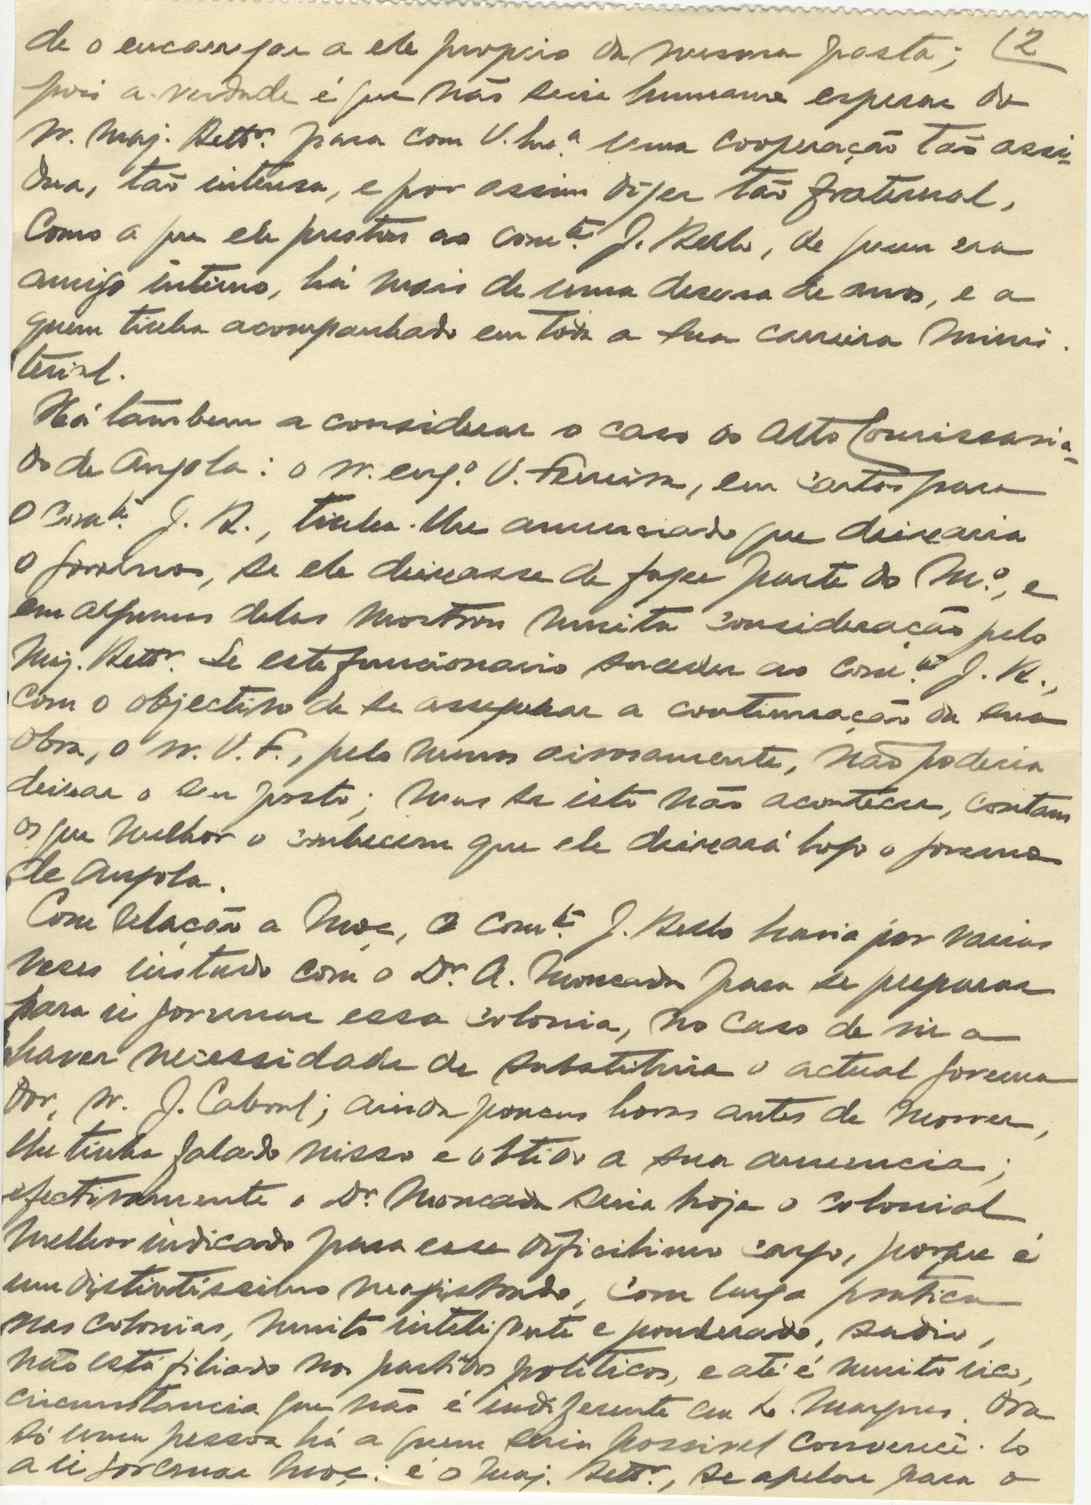 de o encarregar a ele proprio da mesma pasta; (2
pois a verdade é que não seria humano esperar do
sr. Maj. Bettr. para com V. Ex.ª uma cooperação tão assi-
dua, tão intensa, e por assim dizer tão fraternal,
como a que ele prestou ao com.te J. Bello, de quem era
amigo íntimo, há mais de uma dezena de anos, e a
quem tinha acompanhado em toda a sua carreira minis-
terial.
Há tambem a considerar o caso do Alto Comissaria-
do de Angola: o sr. eng.º V. Ferreira, em cartas para
o com.te J. B., tinha-lhe anunciado que deixaria
o governo, se ele deixasse de fazer parte do M.º, e
em algumas delas mostrou muita consideração pelo
Maj. Bettr. Se este funcionario suceder ao com.te J. B.,
com o objectivo de se assegurar a continuação da sua
obra, o sr. V. F., pelo menos airosamente, não poderia
deixar o seu posto; mas se isto não acontecer, contam
os que melhor o conhecem que ele deixará logo o governo
de Angola.
Com relação a Moç, o com.te J. Bello havia por varias
vezes instado com o Dr. A. Moncada para se preparar
para ir governar essa colonia, no caso de vir a
haver necessidade de substituir o actual governa
dor, sr. J. Cabral; ainda poucas horas antes de morrer,
lhe tinha falado nisso e obtido a sua anuencia;
efectivamente o Dr. Moncada seria hoje o colonial
melhor indicado para esse dificilimo cargo, porque é
um distintissimo magistrado, com larga pratica
nas colonias, muito inteligente e ponderado, sadio,
não está filiado nos partidos politicos, e até é muito rico,
circunstancia que não é indiferente em L. Marques. Ora
só uma pessoa há a quem seria possivel convencê-lo
a ir governar Moç: é o Maj. Bettr., se apelar para o